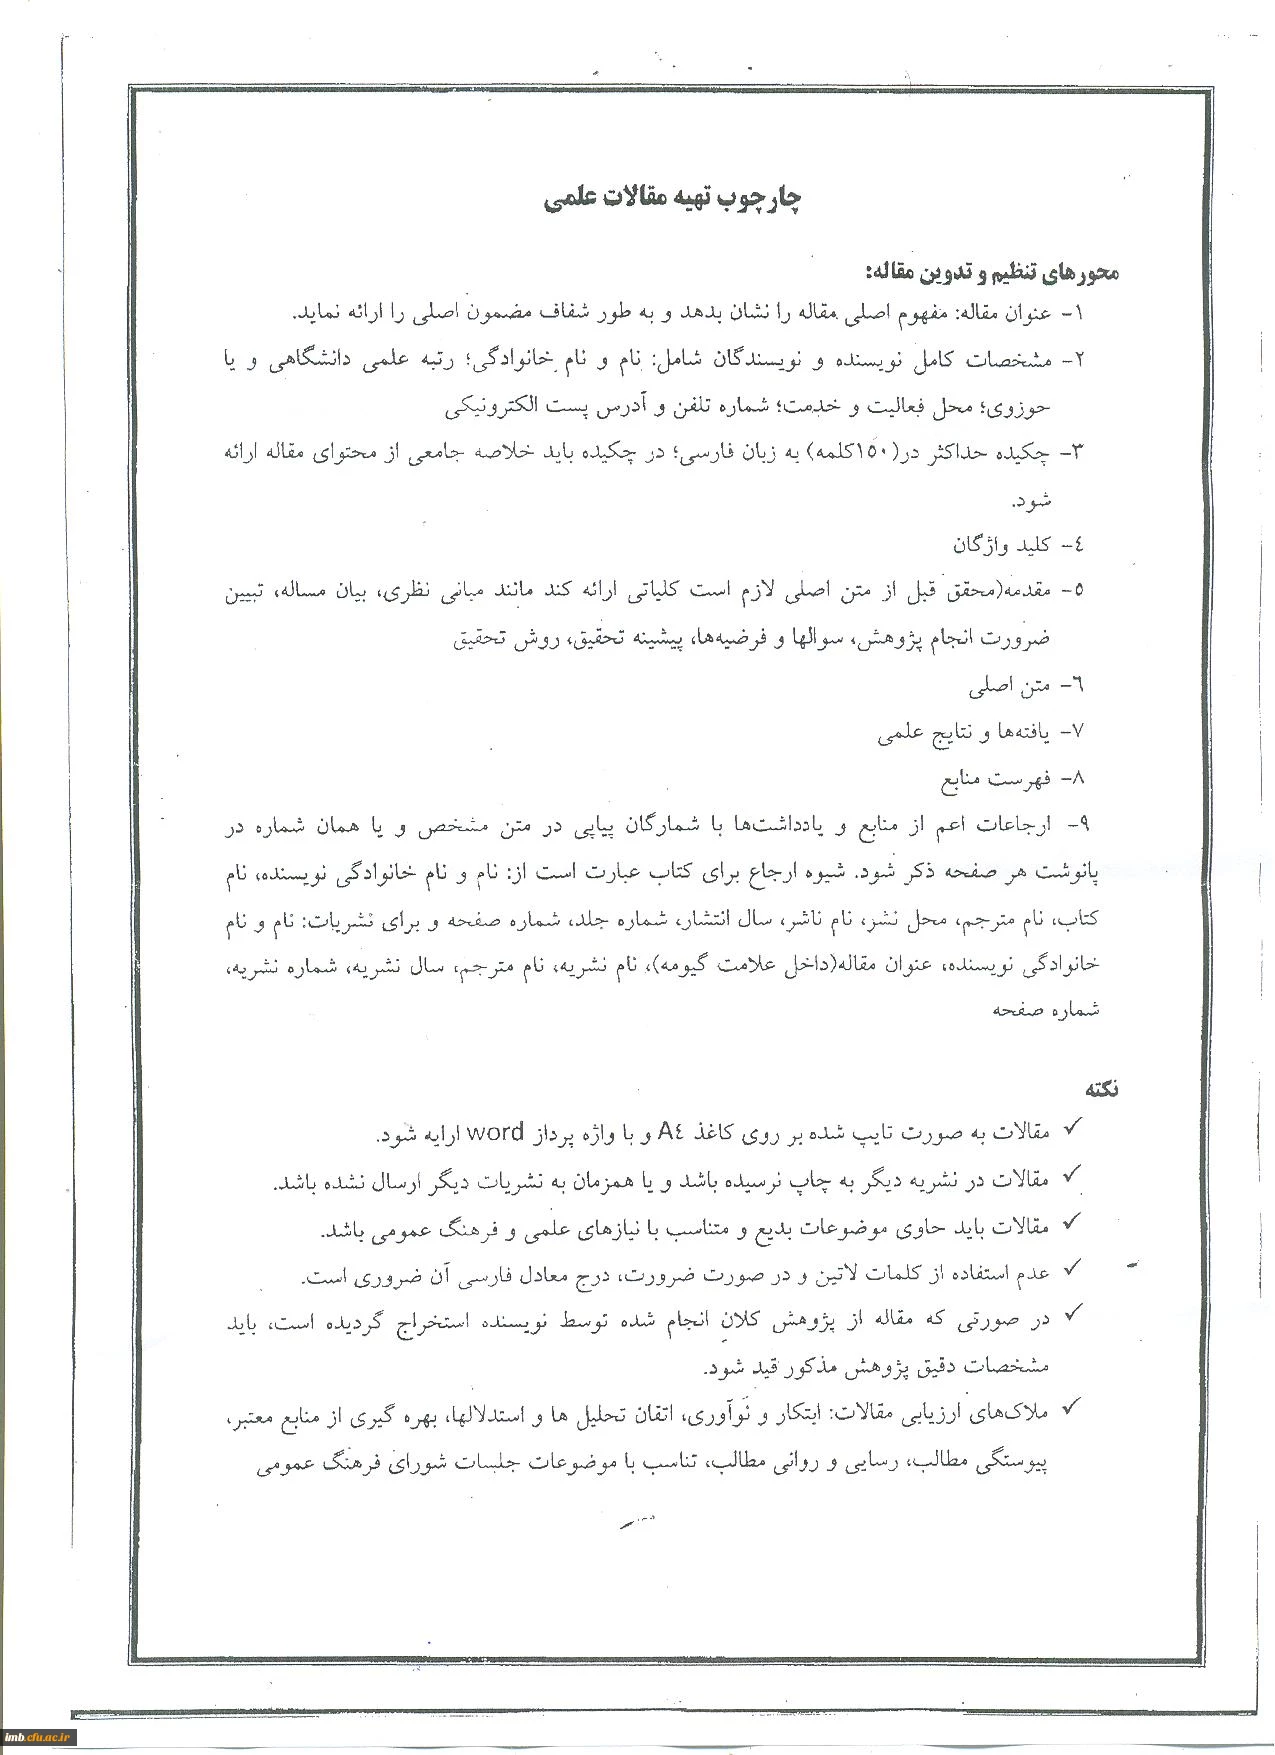 چارچوب تهیه مقالات علمی
محورهای تنظیم و تدوین مقاله:
۱- عنوان مقاله: مفهوم اصلی مقاله را نشان بدهد و به طور شفاف مضمون اصلی را ارائه نماید.
۲- مشخصات کامل نویسنده و نویسندگان شامل: نام و نام خانوادگی؛ رتبه علمی دانشگاهی و یا
حوزوی؛ محل فعالیت و خدمت؛ شماره تلفن و آدرس پست الکترونیکی
۳- چکیده حداکثر در(۱۵۰کلمه) به زبان فارسی؛ در چکیده باید خلاصه جامعی از محتوای مقاله ارائه
شود.
٤- کلید واژگان
٥- مقدمه(محقق قبل از متن اصلی لازم است کلیاتی ارائه کند مانند مبانی نظری، بیان مساله، تبیین
ضرورت انجام پژوهش، سوالها و فرضیه‌ها، پیشینه تحقیق، روش تحقیق
٦- متن اصلی
۷- یافته‌ها و نتایج علمی
۸- فهرست منابع
۹- ارجاعات اعم از منابع و یادداشت‌ها با شمارگان پیاپی در متن مشخص و یا همان شماره در
پانوشت هر صفحه ذکر شود. شیوه ارجاع برای کتاب عبارت است از: نام و نام خانوادگی نویسنده، نام
کتاب، نام مترجم، محل نشر، نام ناشر، سال انتشار، شماره جلد، شماره صفحه و برای نشریات: نام و نام
خانوادگی نویسنده، عنوان مقاله(داخل علامت گیومه)، نام نشریه، نام مترجم، سال نشریه، شماره نشریه،
شماره صفحه
نکته
✓ مقالات به صورت تایپ شده بر روی کاغذ A٤ و با واژه پرداز word ارایه شود.
✓ مقالات در نشریه دیگر به چاپ نرسیده باشد و یا همزمان به نشریات دیگر ارسال نشده باشد.
✓ مقالات باید حاوی موضوعات بدیع و متناسب با نیازهای علمی و فرهنگ عمومی باشد.
✓ عدم استفاده از کلمات لاتین و در صورت ضرورت، درج معادل فارسی آن ضروری است.
✓ در صورتی که مقاله از پژوهش کلان انجام شده توسط نویسنده استخراج گردیده است، باید
مشخصات دقیق پژوهش مذکور قید شود.
✓ ملاک‌های ارزیابی مقالات: ابتکار و نوآوری، اتقان تحلیل ها و استدلالها، بهره گیری از منابع معتبر،
پیوستگی مطالب، رسایی و روانی مطالب، تناسب با موضوعات جلسات شورای فرهنگ عمومی
imb.cfu.ac.ir